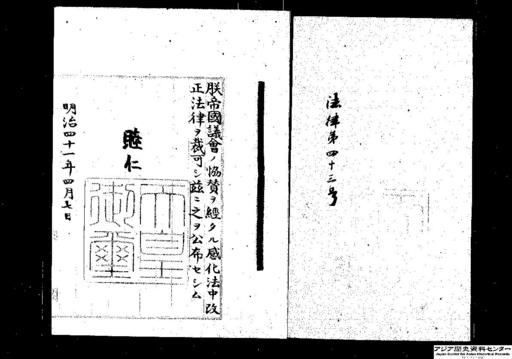 法律第四十三号
朕帝國議會ノ協賛ヲ經タル感化法中改
正法律ヲ裁可シ茲ニ之ヲ公布セシム
睦仁
天皇
御璽
明治四十一年四月七日
アジア歴史資料センター
Japan Center for Asian Historical Records